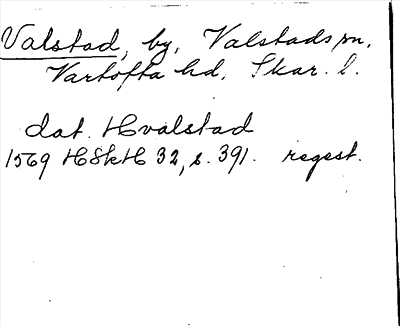 Valstad, by, Valstads sn,
Vartofta hd, Skar. l.
dat. Hvalstad
1569 HSkH 32, s. 391. regest.